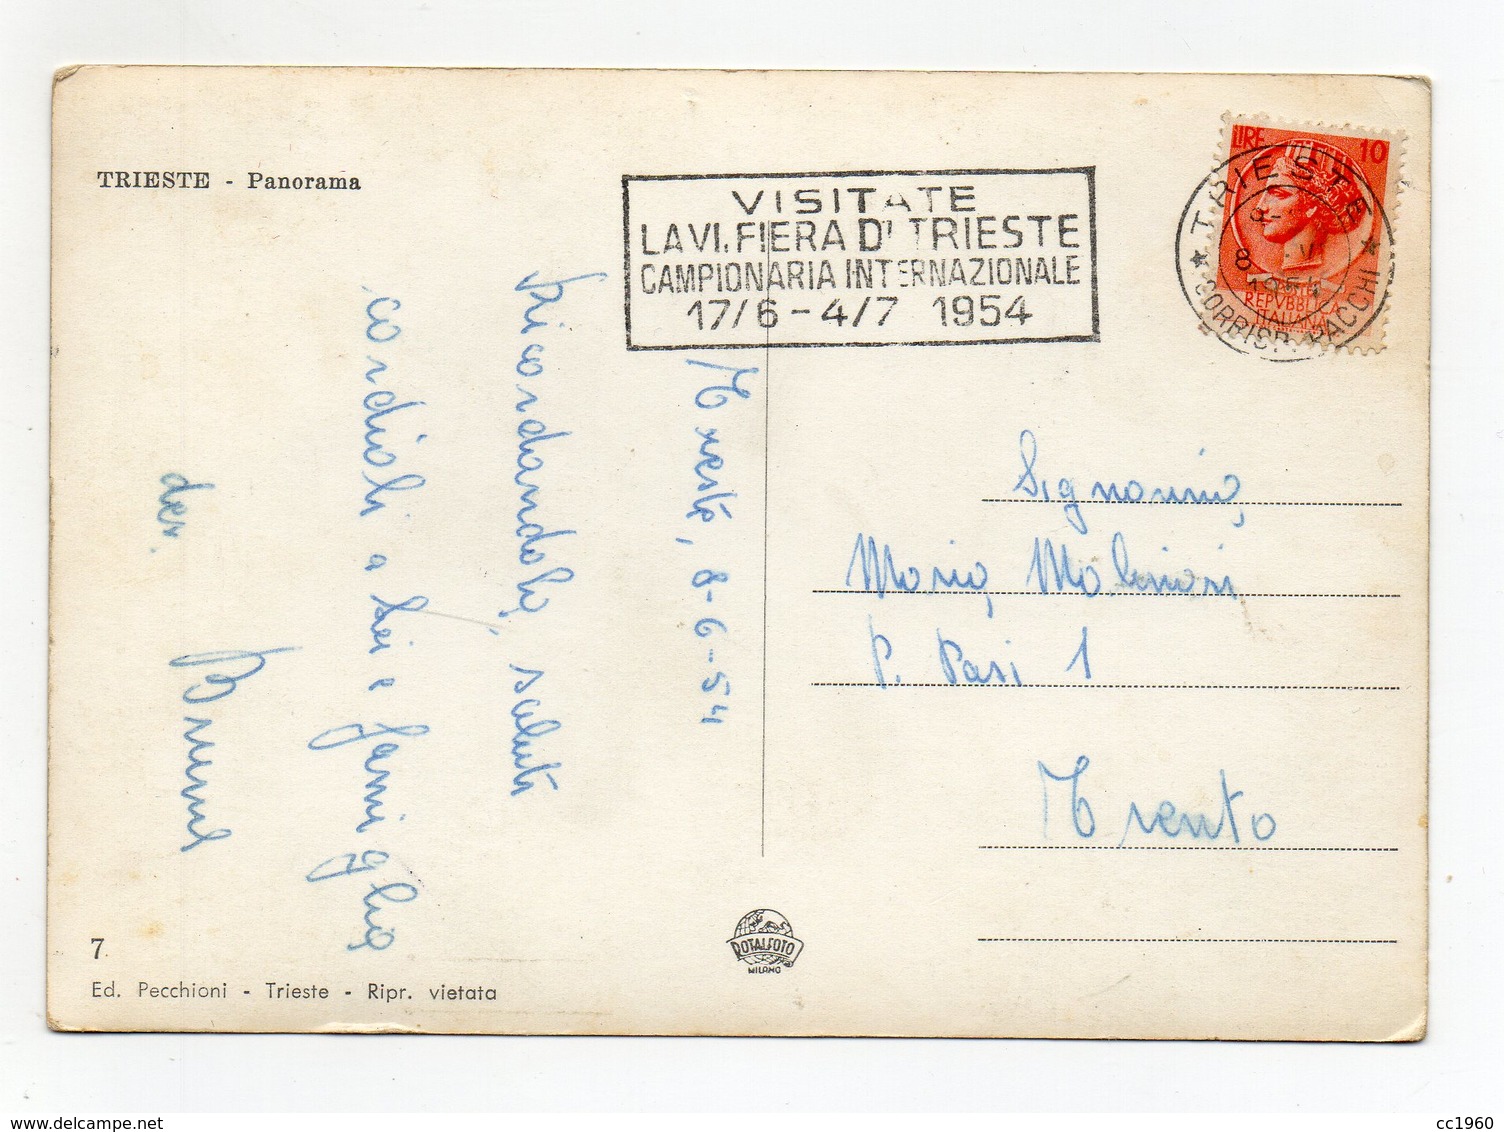 TRIESTE - Panorama
VISITATE
LA VI. FIERA DI TRIESTE
CAMPIONARIA INTERNAZIONALE
17/6 - 4/7 1954
LIRE 10
REPVBBLICA
ITALIANA
TRIESTE
8
1954
CORRISP. PACCHI
Trieste, 8-6-54
Ricordandola, saluti
cordiali a Lei e famiglia
dev.
Signorina
Maria Molinari
P. Pasi 1
Trento
7
Ed. Pecchioni - Trieste - Ripr. vietata
ROTALFOTO
MILANO
cc1960